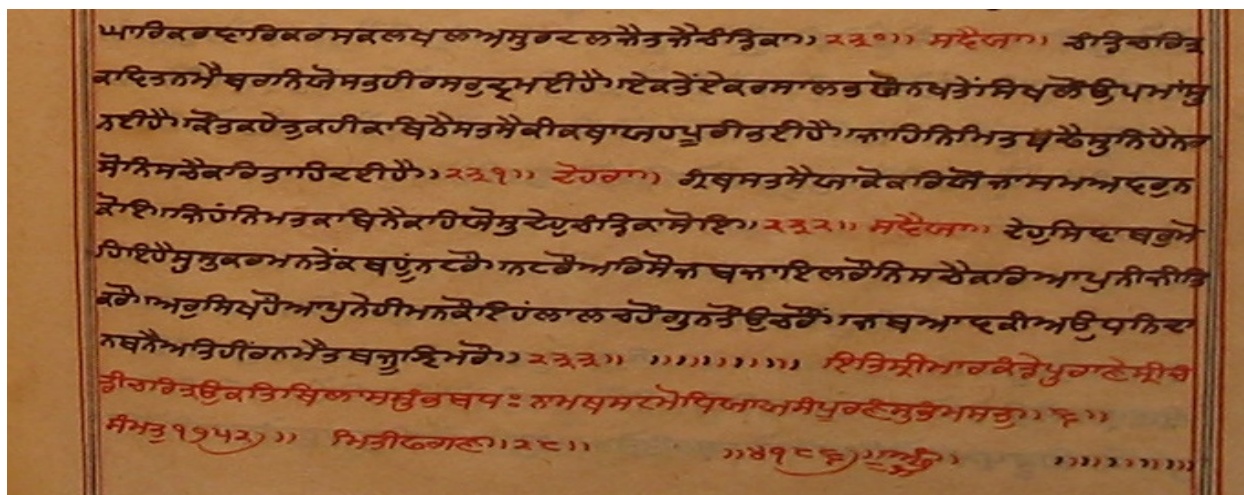 ਘਾਰਿਕਰਛਾਰਿਕਰਸਕਲਖਲਾਅਸੁਰਦਲਜੈਤਜੈਚੰਡਿਕਾ॥ ੨੩੦॥ ਸਵੈਯਾ॥ ਚੰਡਿਚਰਿਤ੍ਰ
ਕਵਿਤਨਮੈਬਰਨਿਯੋਸਭਹੀਰਸਰੁਦ੍ਰਮਈਹੈ॥ਏਕਤੇਂਏਕਰਸਾਲਭਯੋਨਖਤੇਂਸਿਖਲੌਂਉਪਮਾਂਸੁ
ਨਈਹੈ॥ਕੌਤਕਹੇਤੁਕਹੀਕਵਿਨੈਸਤਸੈਕੀਕਥਾਯਹਪੂਰੀਭਈਹੈ॥ਜਾਹਿਨਿਮਿਤਪੜੈਸੁਨਿਹੈਨਰ
ਸੋਨਿਸਚੈਕਰਿਤਾਹਿਦਈਹੈ॥੨੩੧॥ ਦੋਹਰਾ॥ ਗ੍ਰੰਥਸਤਸੈਯਾਕੋਕਰਿਯੋਜਾਸਮਅਵਰੁਨ
ਕੋਇ॥ਜਿਹਂਨਿਮਤਕਵਿਨੈਕਹਿਯੋਸੁਦੇਹੁਚੰਡਿਕਾਸੋਇ॥੨੩੨॥ ਸਵੈਯਾ॥ ਦੇਹੁਸਿਵਾਬਰੁਮੋ
ਹਿਇਹੈਸੁਭੁਕਰਮਨਤੇਂਕਬਹੂੰਨਟਰੋ॥ਨਡਰੋਅਰਿਸੋਜਬਜਾਇਲਰੋਨਿਸਚੈਕਰਿਆਪੁਨੀਜੀਤਿ
ਕਰੋ॥ਅਰੁਸਿਖਹੋਆਪੁਨੇਹੀਮਨਕੌਇਹਂਲਾਲਚਹੋਂਗੁਨਤੋਉਚਰੋਂ॥ਜਬਆਵਕੀਅਉਧਨਿਦਾ
ਨਬਨੈਅਤਿਹੀਂਰਨਮੈਤਬਜੂਝਿਮਰੋ॥੨੩੩॥ ॥॥॥॥॥ ਇਤਿਸ੍ਰੀਮਾਰਕੰਡੇਪੁਰਾਣੇਸ੍ਰੀਚੰ
ਡੀਚਰਿਤ੍ਰਉਕਤਿਬਿਲਾਸਸੁੰਭਬਧਃਨਾਮਖਸਟਮੋਧਿਯਾਯਸੰਪੂਰਣੰਸੁਭੰਮਸਤੁ॥੬॥
ਸੰਮਤੁ੧੭੫੨॥ ਮਿਤੀਫਗਣ॥੨੮॥ ॥੪੧੮੬॥ ॥॥॥॥॥